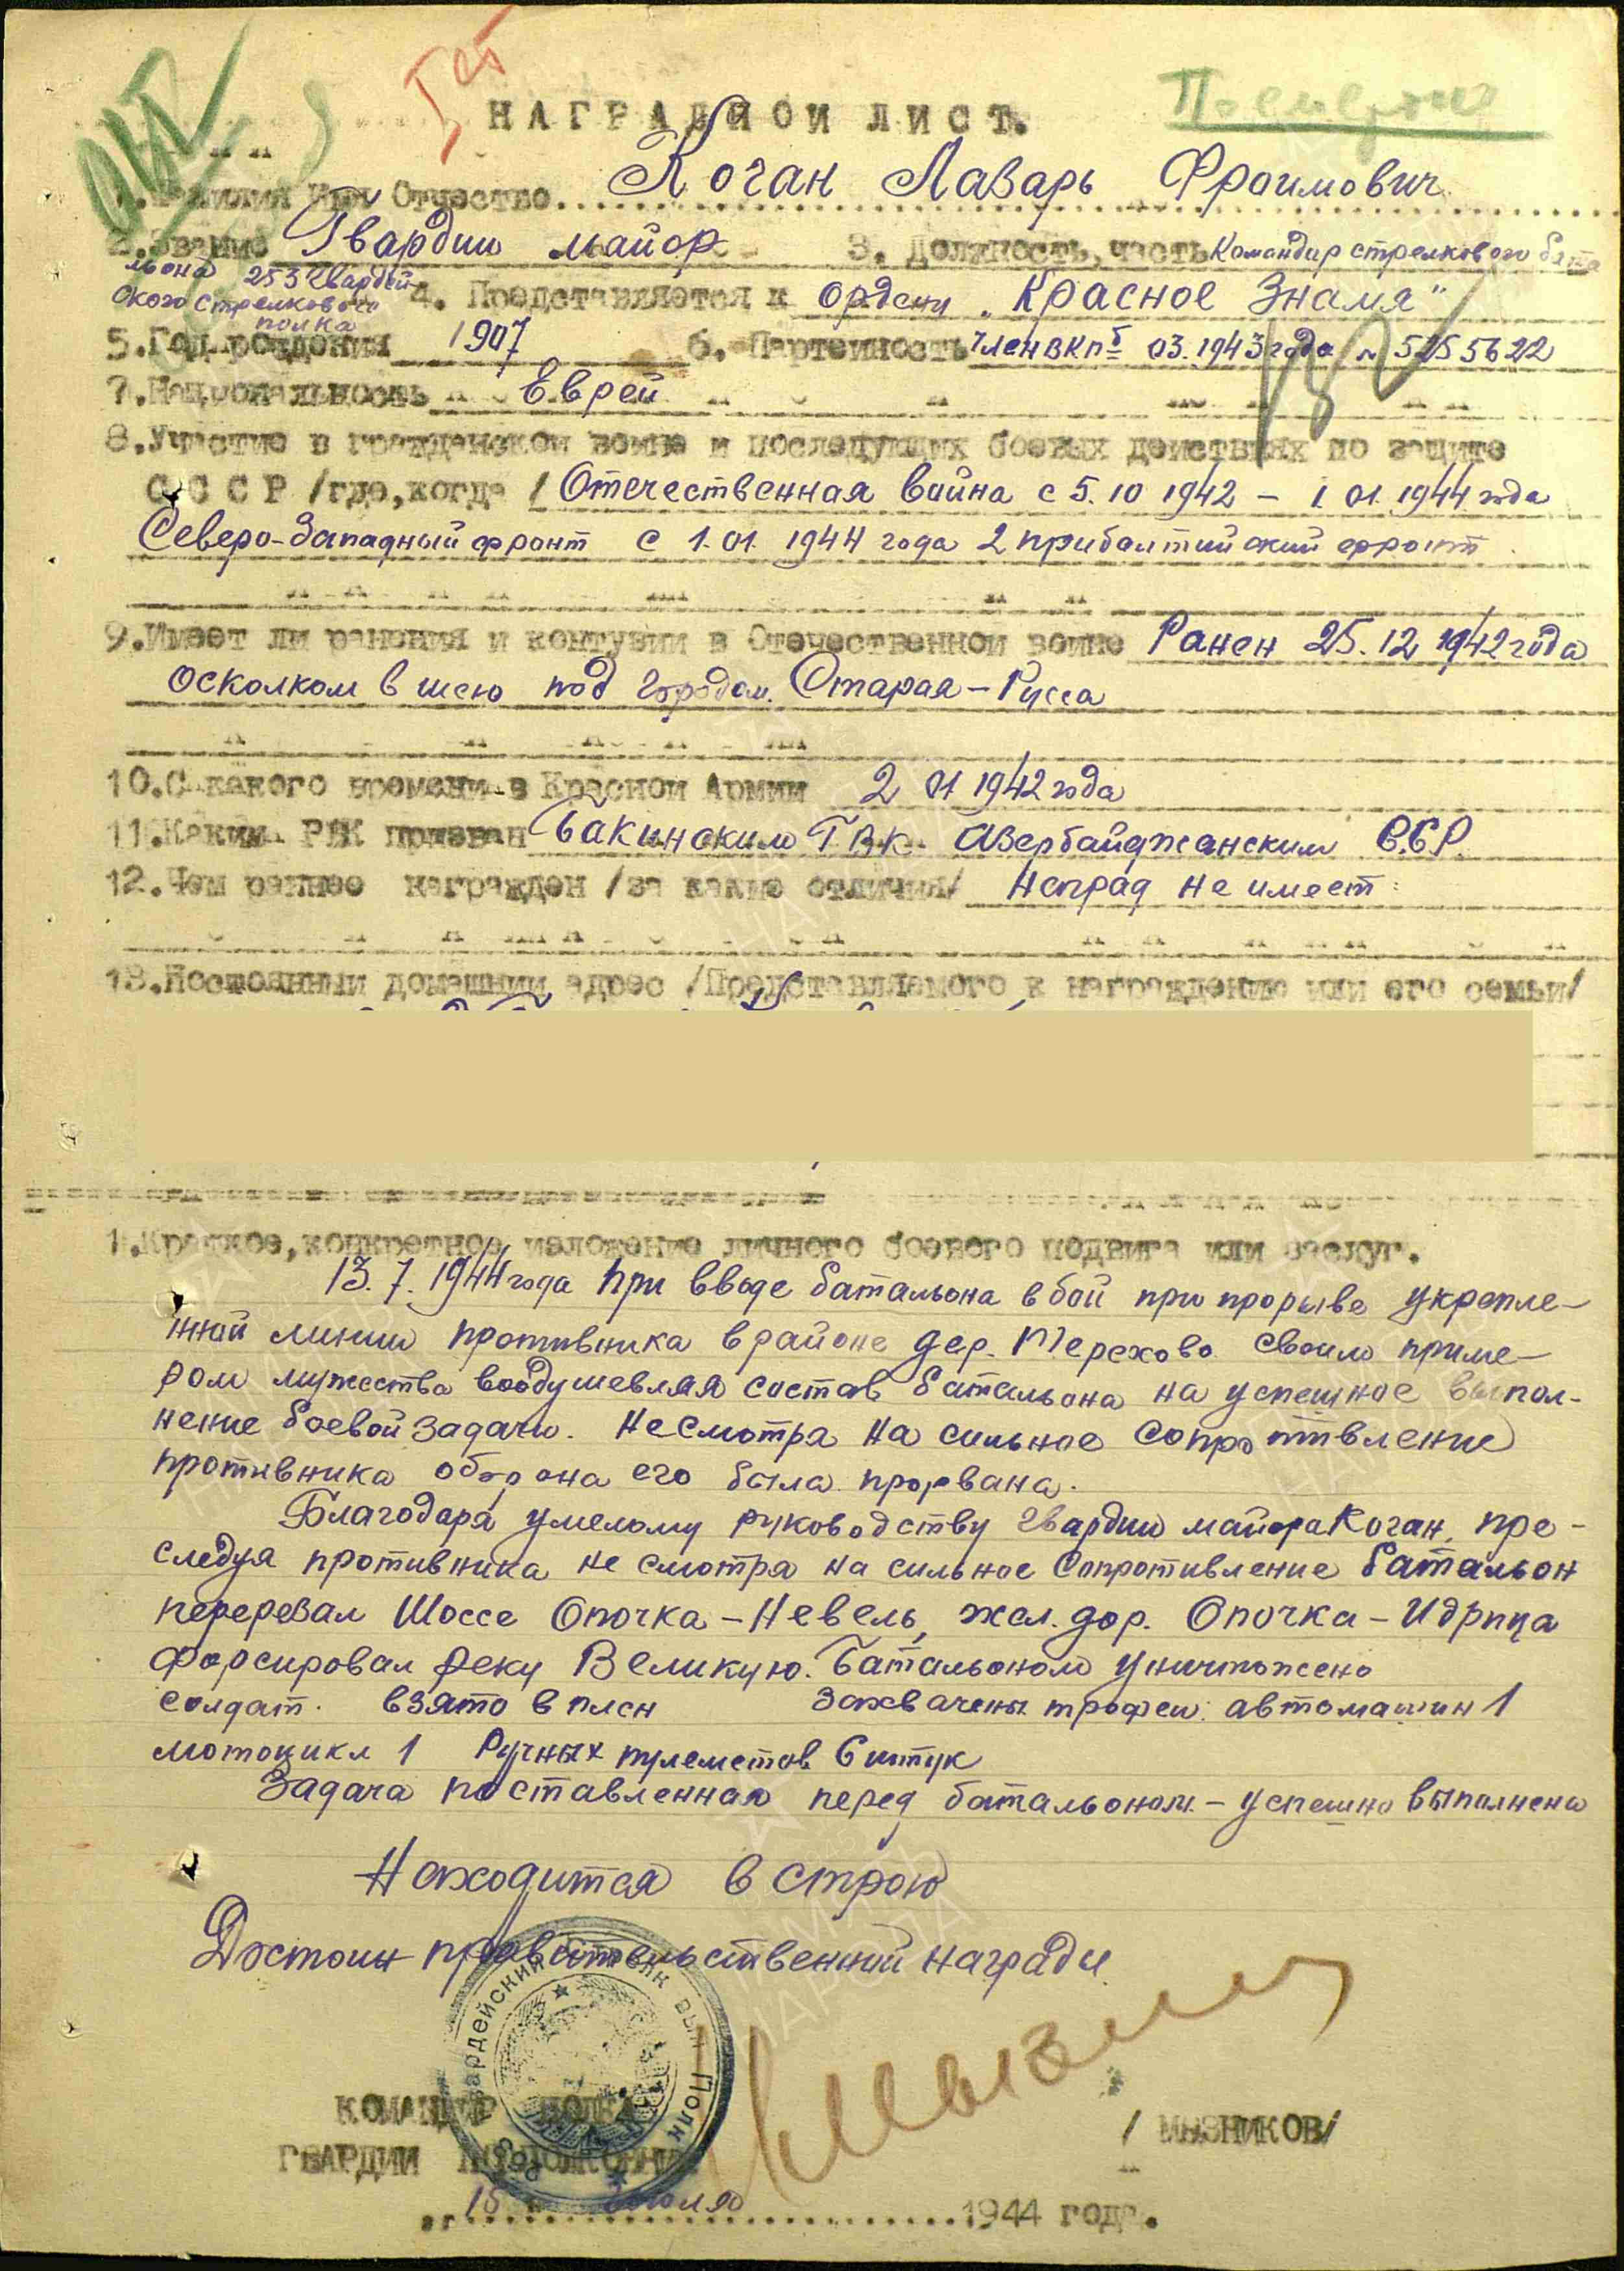 НАГРАДНОЙ ЛИСТ.
1.Фамилия Имя Отчество... Коган Лазарь Фроимович
2.Звание Гвардии майор 3. Должность, часть Командир стрелкового бата
льона 253 Гвардей
ского стрелкового
полка
4. Представляется к ордену „Красное Знамя"
5.Год рождения 1907 6. Партейность Член ВКПб 03.1943 года № 5255622
7.Национальность Еврей
8.Участие в гражданской войне и последующих боевых действиях по защите
С С С Р /где,когда / Отечественная война с 5.10 1942 – 1 01.1944 года
Северо-Западный фронт с 1.01. 1944 года 2 прибалтийский фронт
9.Имеет ли ранения и контузии в Отечественной войне Ранен 25.12 1942 года
осколком в шею под городом Старая-Русса
10.С какого времени в Красной Армии 2 01 1942 года
11.Каким РВК призван Бакинским ГВК Азербайджанским ССР.
12.Чем раннее награжден /за какие отличия/ Наград не имеет
13.Постоянный домашний адрес /Представляемого к награждению или его семьи/
1.Краткое,конкретное изложение личного боевого подвига или заслуг.
13.7.1944 года при вводе батальона в бой при прорыве укрепле-
нной линии противника в районе дер. Терехово своим приме-
ром мужества воодушевляя состав батальона на успешное выпол-
нение боевой задачи. Несмотря на сильное сопротивление
противника оборона его была прорвана.
Благодаря умелому руководству гвардии майора Коган, пре-
следуя противника не смотря на сильное сопротивление батальон
перерезал Шоссе Опочка – Невель, жел. дор. Опочка – Идрица
форсировал реку Великую. Батальоном уничтожено
солдат. взято в плен захвачены трофеи: автомашин 1
мотоцикл 1 Ручных пулеметов 6 штук
Задача поставленная перед батальоном – успешно выполнена
Находится в строю
Достоин правительственной награды.
КОМАНДИР ПОЛКА
ГВАРДИИ ПОДПОЛКОВНИК / МЫЗНИКОВ/
„15" Июля 1944 года.